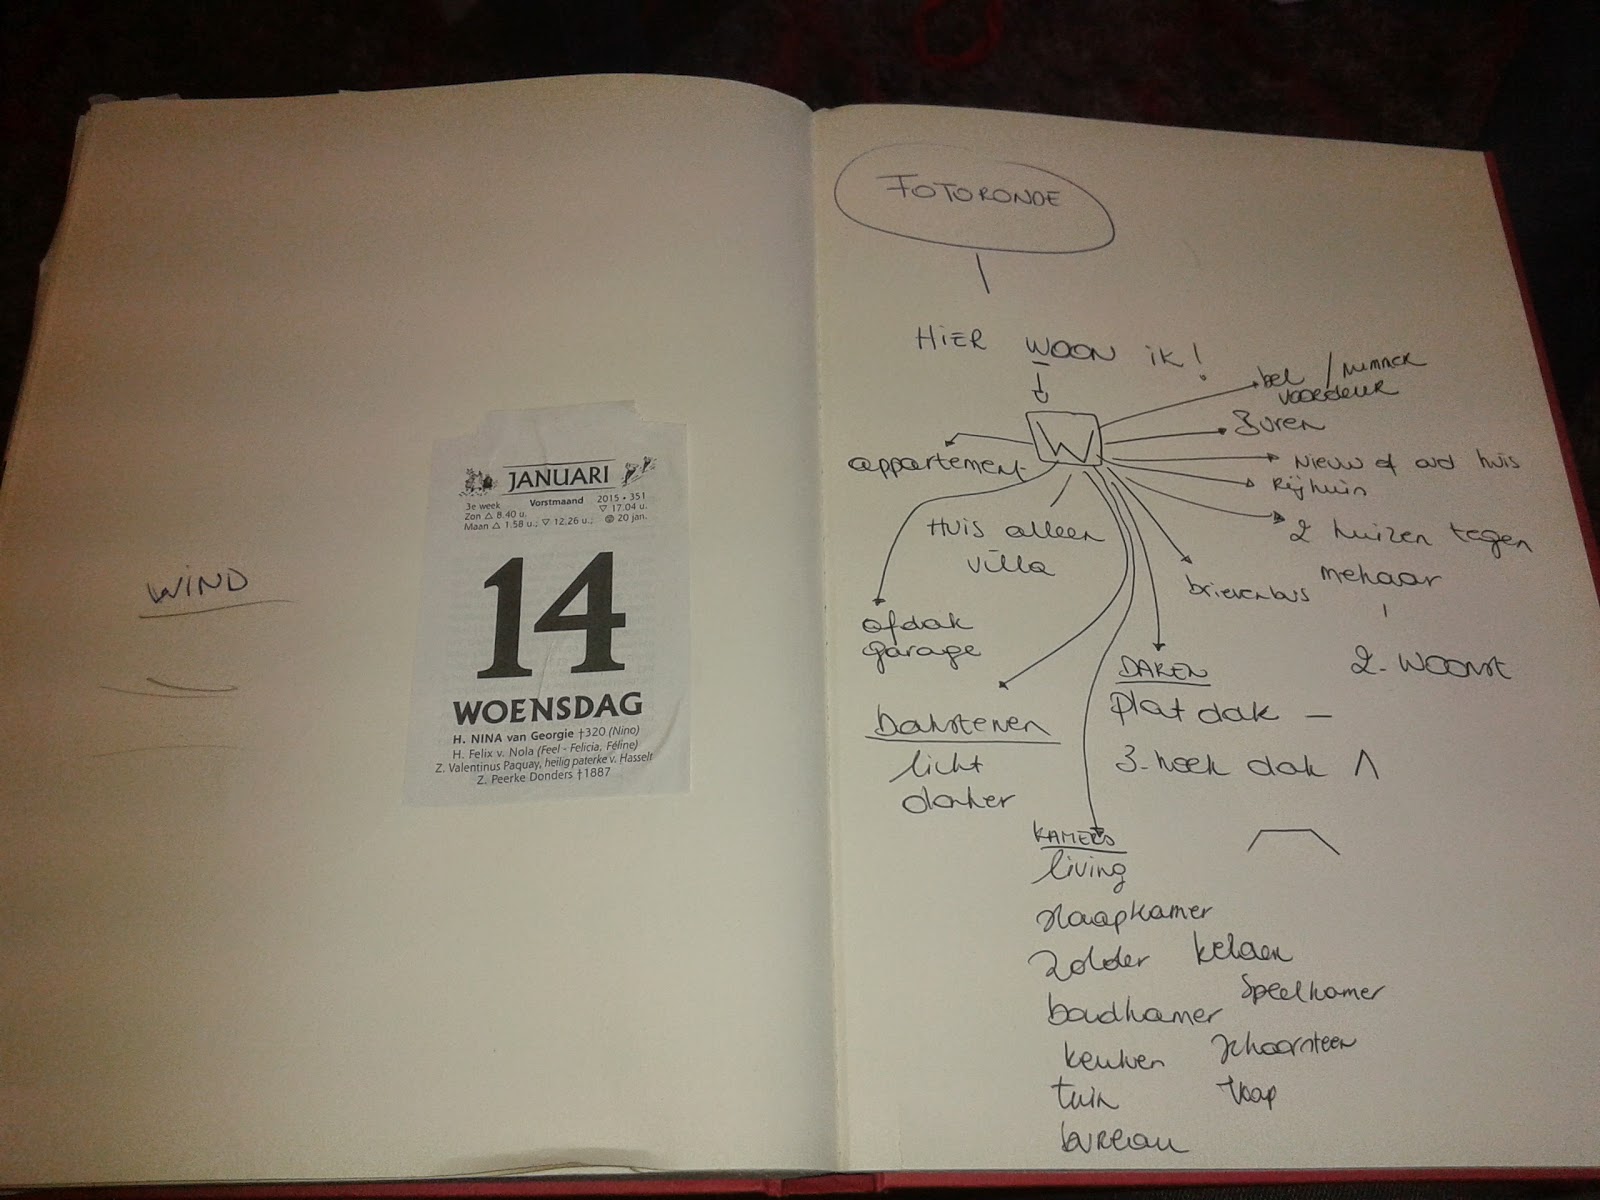 WIND
JANUARI
3e week Vorstmaand 2015 • 351
Zon △ 8.40 u. ▽ 17.04 u.
Maan △ 1.58 u.; ▽ 12.26 u.; 20 jan.
14
WOENSDAG
H. NINA van Georgie †320 (Nino)
H. Felix v. Nola (Feel - Felicia, Féline)
Z. Valentinus Paquay, heilig paterke v. Hasselt
Z. Peerke Donders †1887
FOTORONDE
HIER WOON IK!
W
bel / nummer
voordeur
Buren
Nieuw of oud huis
Rijhuis
2 huizen tegen
mekaar
2-woonst
brievenbus
appartement
Huis alleen
villa
afdak
garage
bakstenen
licht
donker
DAKEN
plat dak —
3-hoek dak Λ
KAMERS
living
slaapkamer
zolder kelder
speelkamer
badkamer
keuken schoorsteen
tuin trap
bureau